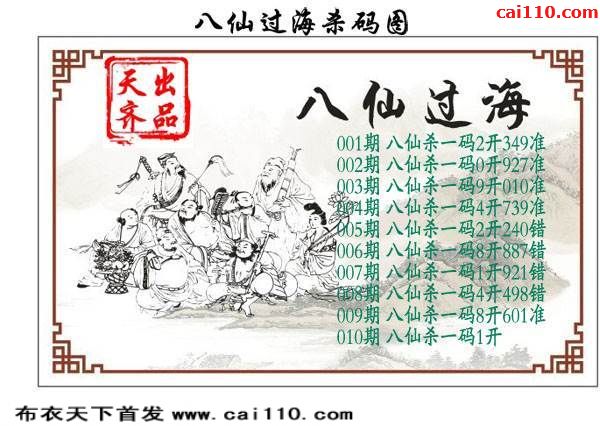 八仙过海杀码图
cai110.com
天齐
出品
八仙过海
001期 八仙杀一码2开349准
002期 八仙杀一码0开927准
003期 八仙杀一码9开010准
004期 八仙杀一码4开739准
005期 八仙杀一码2开240错
006期 八仙杀一码8开887错
007期 八仙杀一码1开921错
008期 八仙杀一码4开498错
009期 八仙杀一码8开601准
010期 八仙杀一码1开
布衣天下首发 www.cai110.com